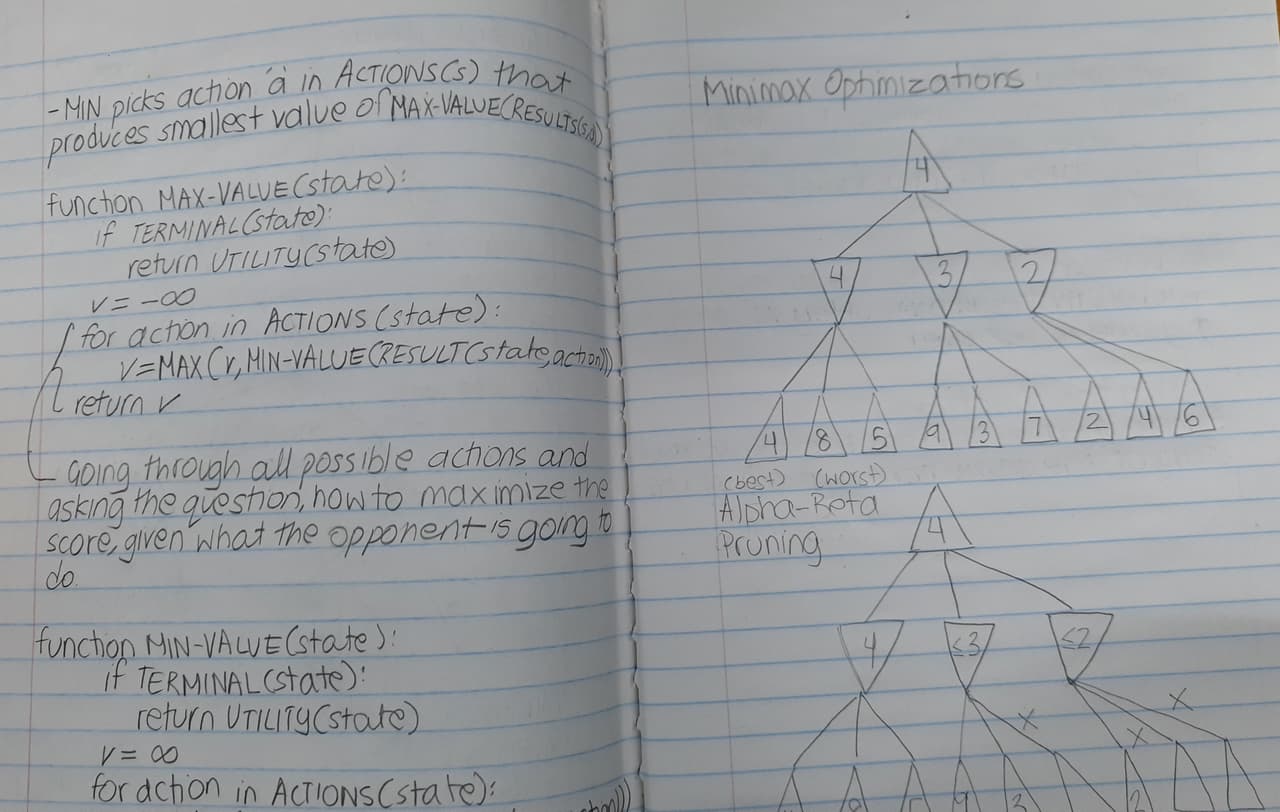 -MIN picks action a in ACTIONS(s) that
produces smallest value of MAX-VALUE(RESULTS(s,a))
function MAX-VALUE(state):
if TERMINAL(state):
return UTILITY(state)
v = -∞
for action in ACTIONS(state):
v=MAX(v,MIN-VALUE(RESULT(state,action)))
return v
going through all possible actions and
asking the question, how to maximize the
score, given what the opponent is going to
do
function MIN-VALUE(state):
if TERMINAL(state):
return UTILITY(state)
v = ∞
for action in ACTIONS(state):
Minimax Optimizations
4
4 3 2
4 8 5 9 3 7 2 4 6
(best) (worst)
Alpha-Beta
Pruning
4
4 ≤3 ≤2
X X X
9 3 2